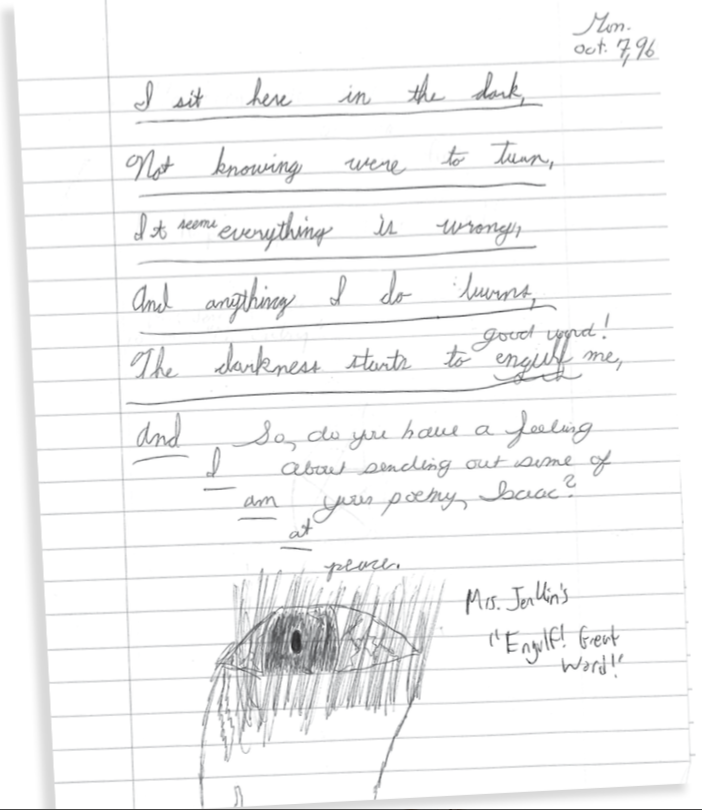 Mon.
Oct. 7, 96
I sit here in the dark,
Not knowing were to turn,
It seems everything is wrong,
And anything I do turns,
good word!
The darkness starts to engulf me,
And
I
am
at
peace.
So, do you have a feeling
about sending out some of
your poetry, Isaac?
Mrs.
"Engulf! Great
Word!"